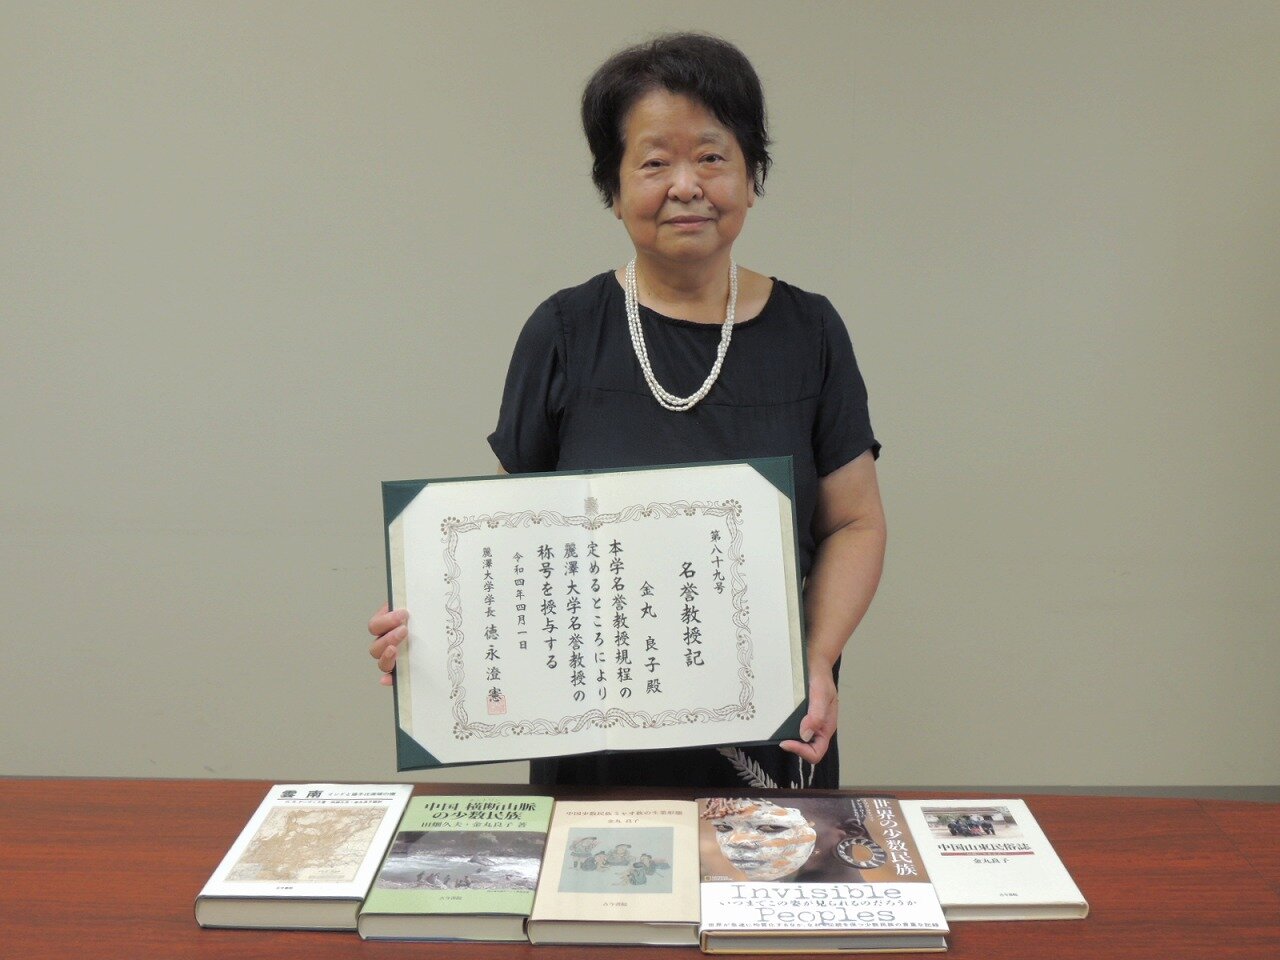 第八十九号
名誉教授記
金丸 良子殿
本学名誉教授規程の
定めるところにより
麗澤大学名誉教授の
称号を授与する
令和四年四月一日
麗澤大学学長 徳永澄憲
雲南
中国 横断山脈
の少数民族
田畑久夫・金丸良子 著
古今書院
中国少数民族ミャオ族の生業形態
金丸 良子
古今書院
世界の少数民族
Invisible
いつまでこの姿が見られるのだろうか
Peoples
中国山東民俗誌
金丸良子
古今書院